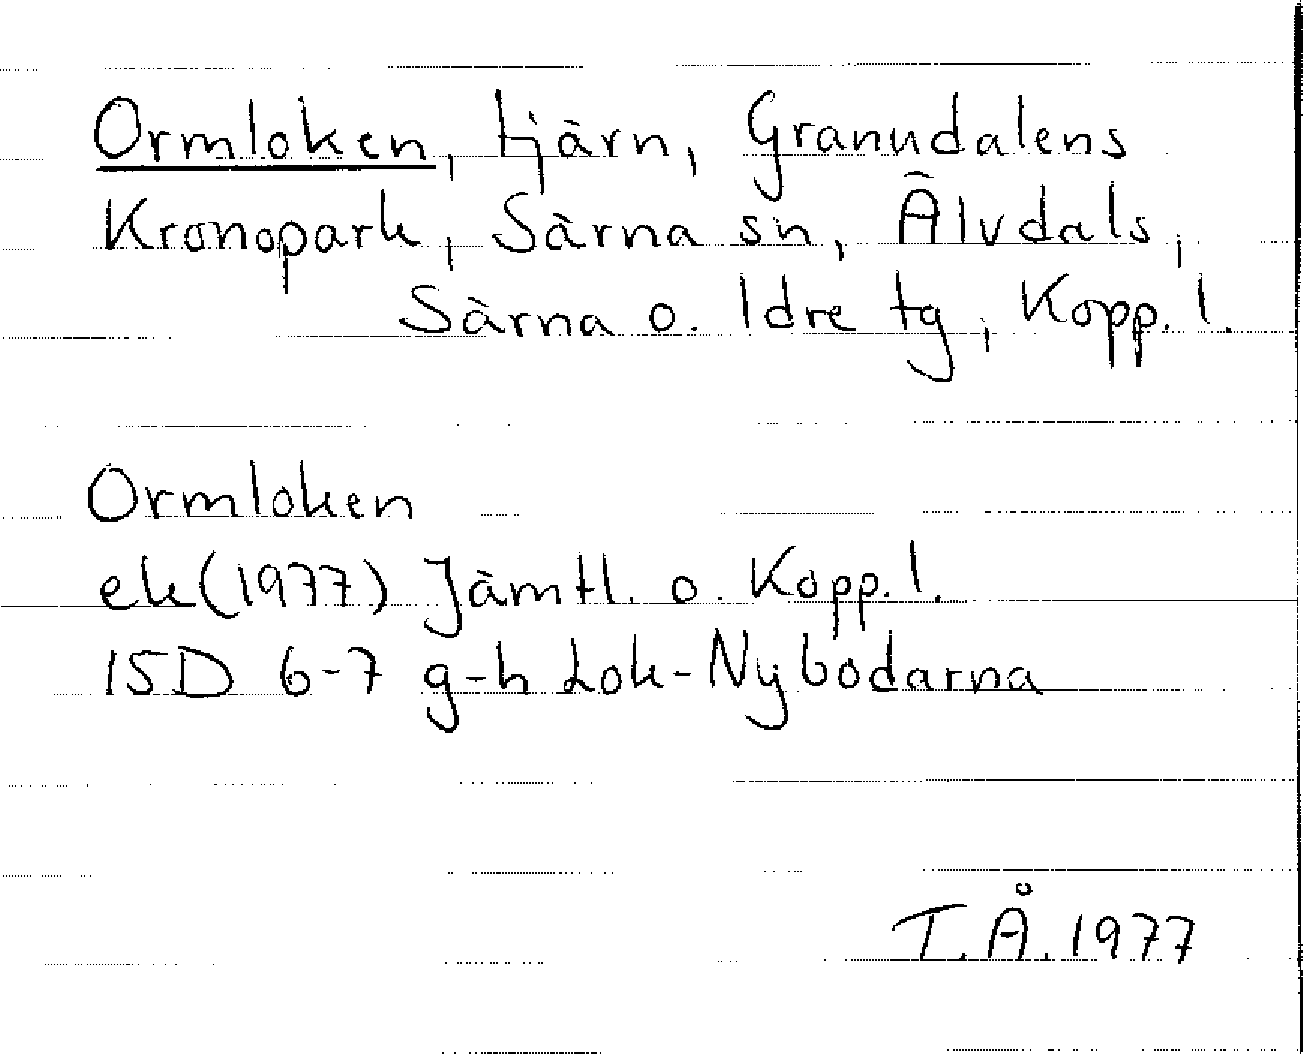 Ormloken, tjärn, Granudalens
Kronopark, Särna sn, Älvdals,
Särna o. Idre tg, Kopp. l.
Ormloken
ek (1977) Jämtl. o. Kopp. l.
15D 6-7 g-h Lok-Nybodarna
T.Å. 1977